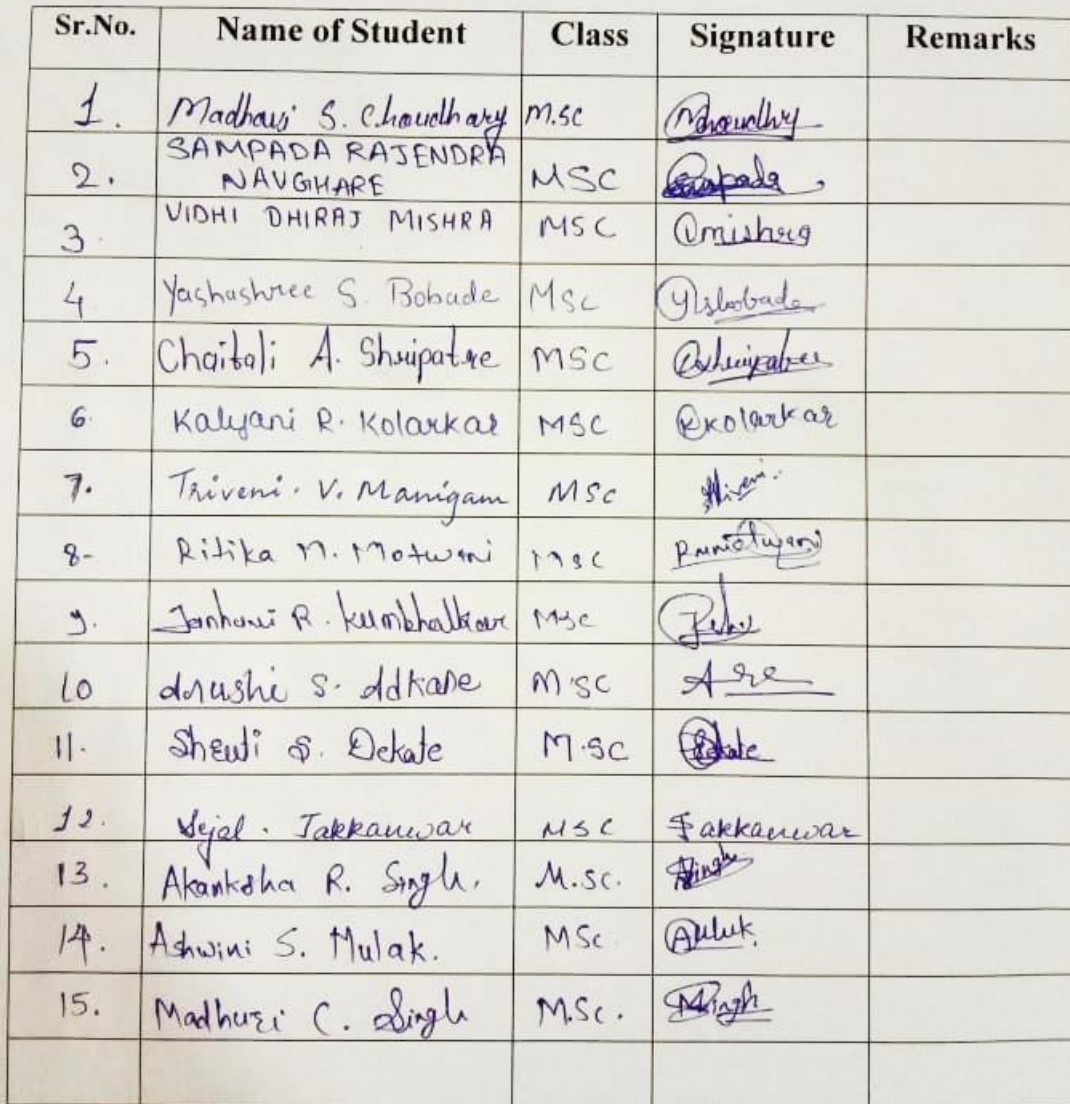 Sr.No. Name of Student Class Signature Remarks
1. Madhavi S. Choudhary M.sc Choudhry
2. SAMPADA RAJENDRA
NAVGHARE MSC
3. VIDHI DHIRAJ MISHRA MSC mishra
4 Yashashree S. Bobade MSc Ysbobade
5. Chaitali A. Shripatre MSC Shripatre
6. Kalyani R. Kolarkar MSC RKolarkar
7. Triveni. V. Manigam MSc Triveni
8- Ritika M. Motwani Msc
9. Janhavi R. Kumbhalkar Msc
10 Arushi S. Adkane M.SC
11. Shruti S. Dekate M.SC Dekate
12. Sejal. Takkamwar MSC Takkamwar
13. Akanksha R. Singh. M.sc. Singh
14. Ashwini S. Mulak. MSc AMulak
15. Madhuri C. Singh M.Sc. MSingh